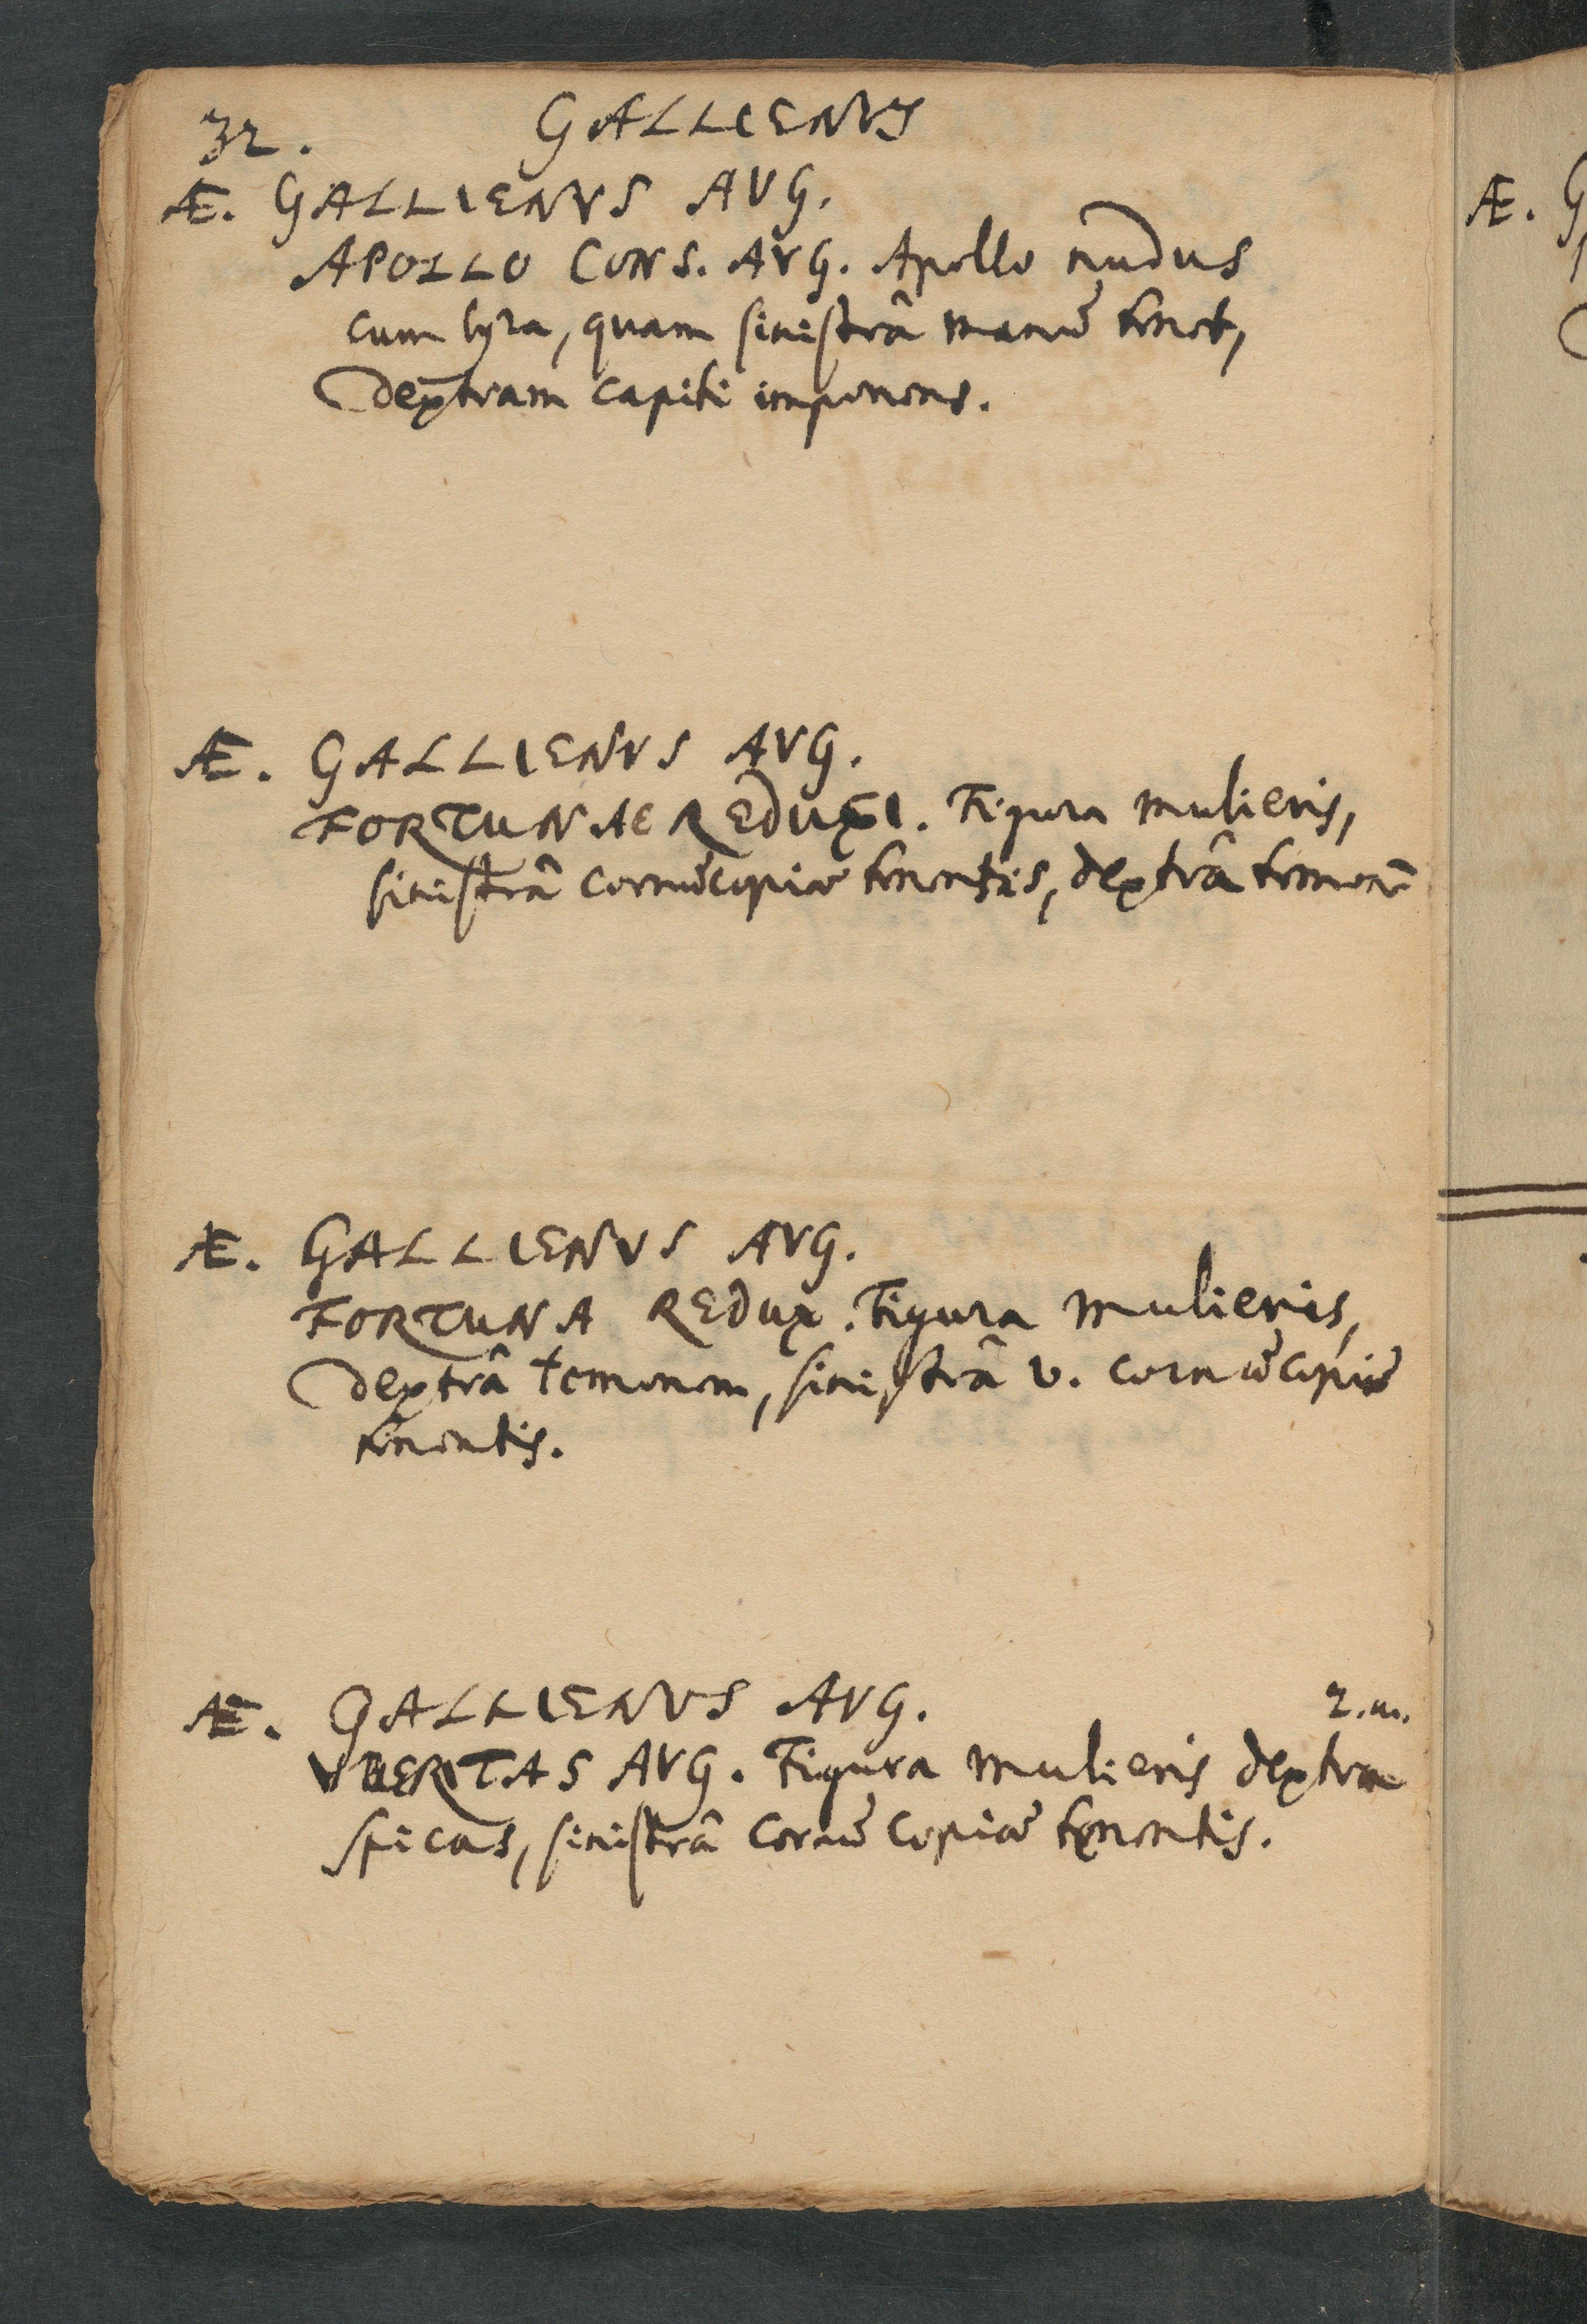 32. GALLIENVS
Æ. GALLIENVS AVG.
APOLLO CONS. AVG. Apollo nudus
cum lyra, quam sinistrâ manu tenet,
dextram capiti imponens.
Æ. GALLIENVS AVG.
FORTUNAE REDUXI. Figura mulieris,
sinistrâ cornucopiæ tenentis, dextrâ temonē
Æ. GALLIENVS AVG.
FORTUNA REDUX. Figura mulieris,
dextrâ temonem, sinistrâ v. cornucopiæ
tenentis.
Æ. GALLIENVS AVG. 2.m.
VBERITAS AVG. Figura mulieris dextra
spicas, sinistrâ cornu copiæ tenentis.
Æ. G